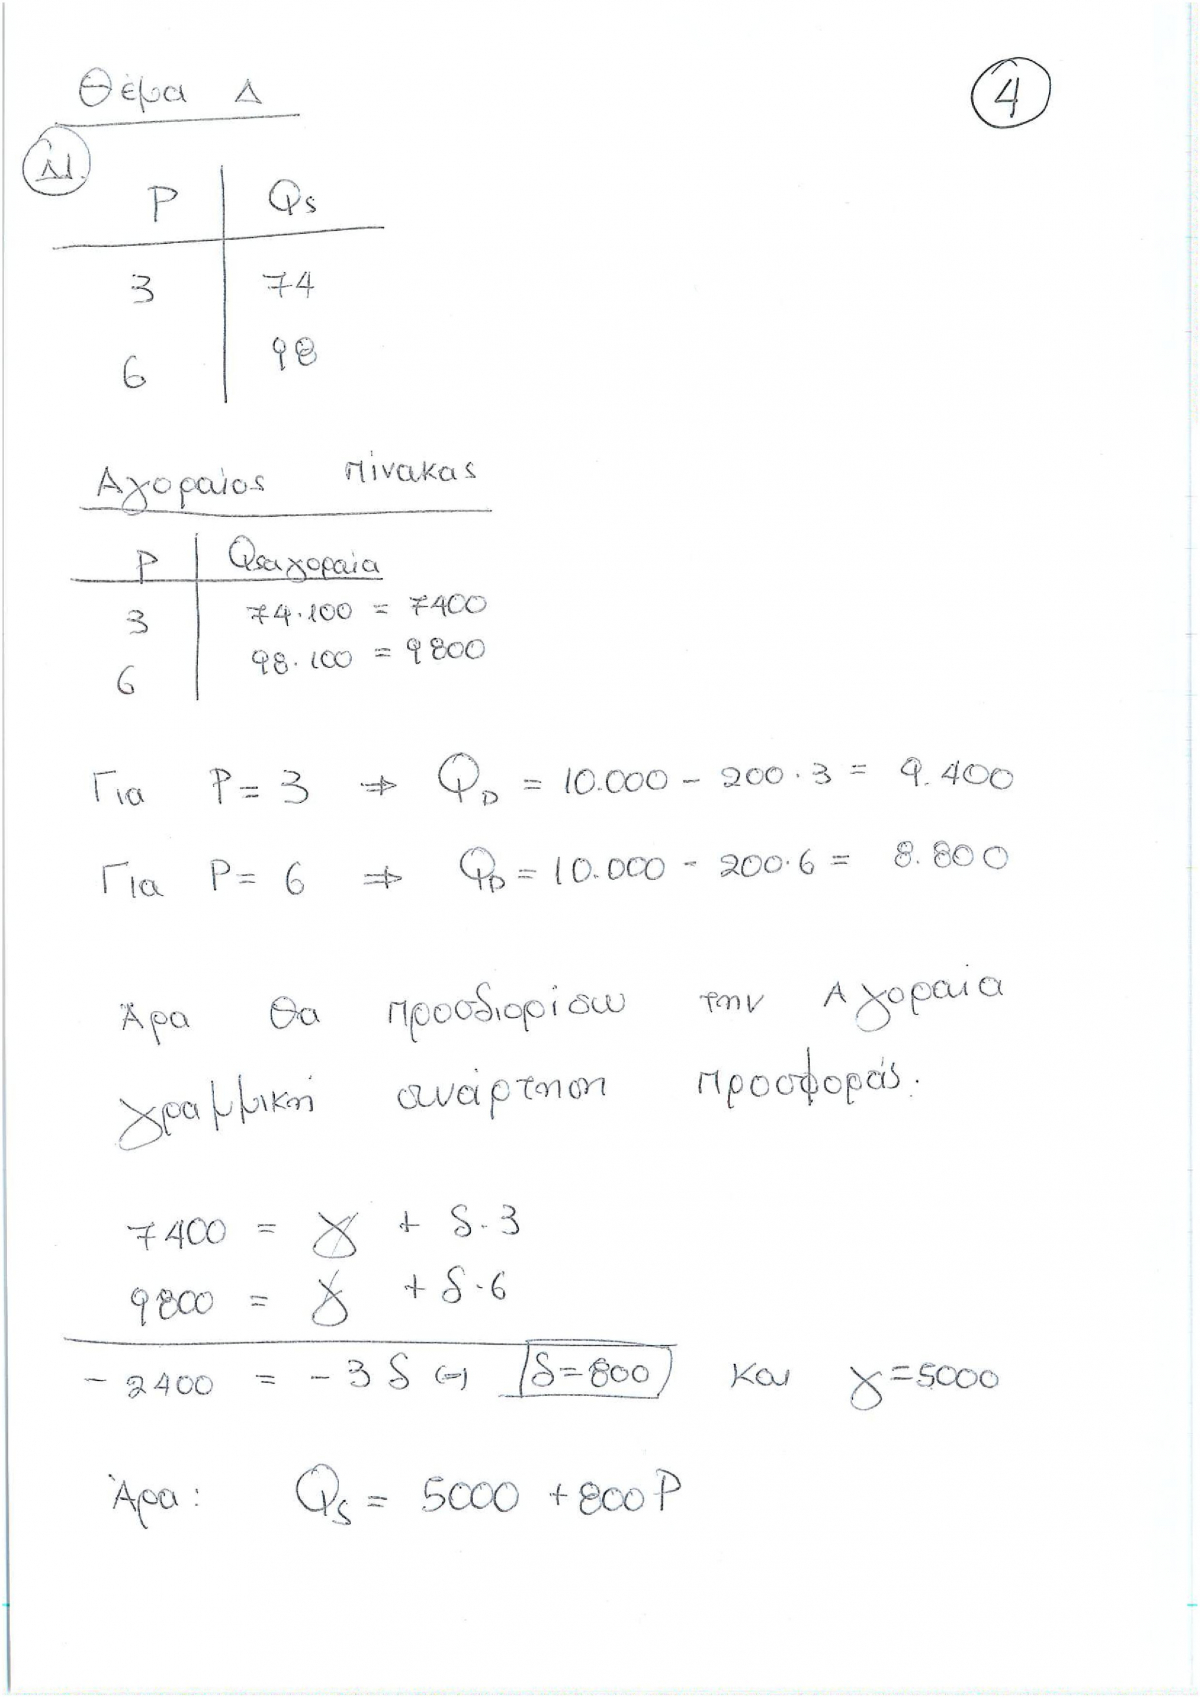 Θέμα Δ
4
Δ1.
P Qs
3 74
6 98
Αγοραίος πίνακας
P Qsαγοραία
3 74.100 = 7400
6 98.100 = 9800
Για P = 3 ⇒ QD = 10.000 - 200.3 = 9.400
Για P = 6 ⇒ QD = 10.000 - 200.6 = 8.800
Άρα θα προσδιορίσω την Αγοραία
γραμμική συνάρτηση προσφοράς.
7400 = γ + δ.3
9800 = γ + δ.6
-2400 = -3δ (=) δ=800 και γ=5000
Άρα: Qs = 5000 + 800P